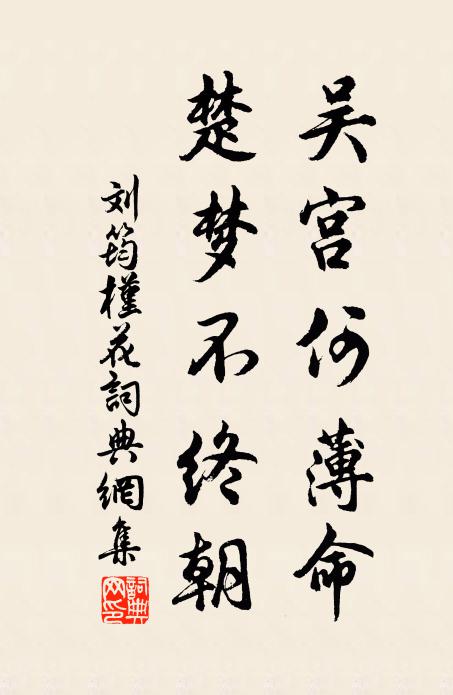 吴宫何薄命
楚梦不终朝
刘筠槿花詞典網集
詞典网印